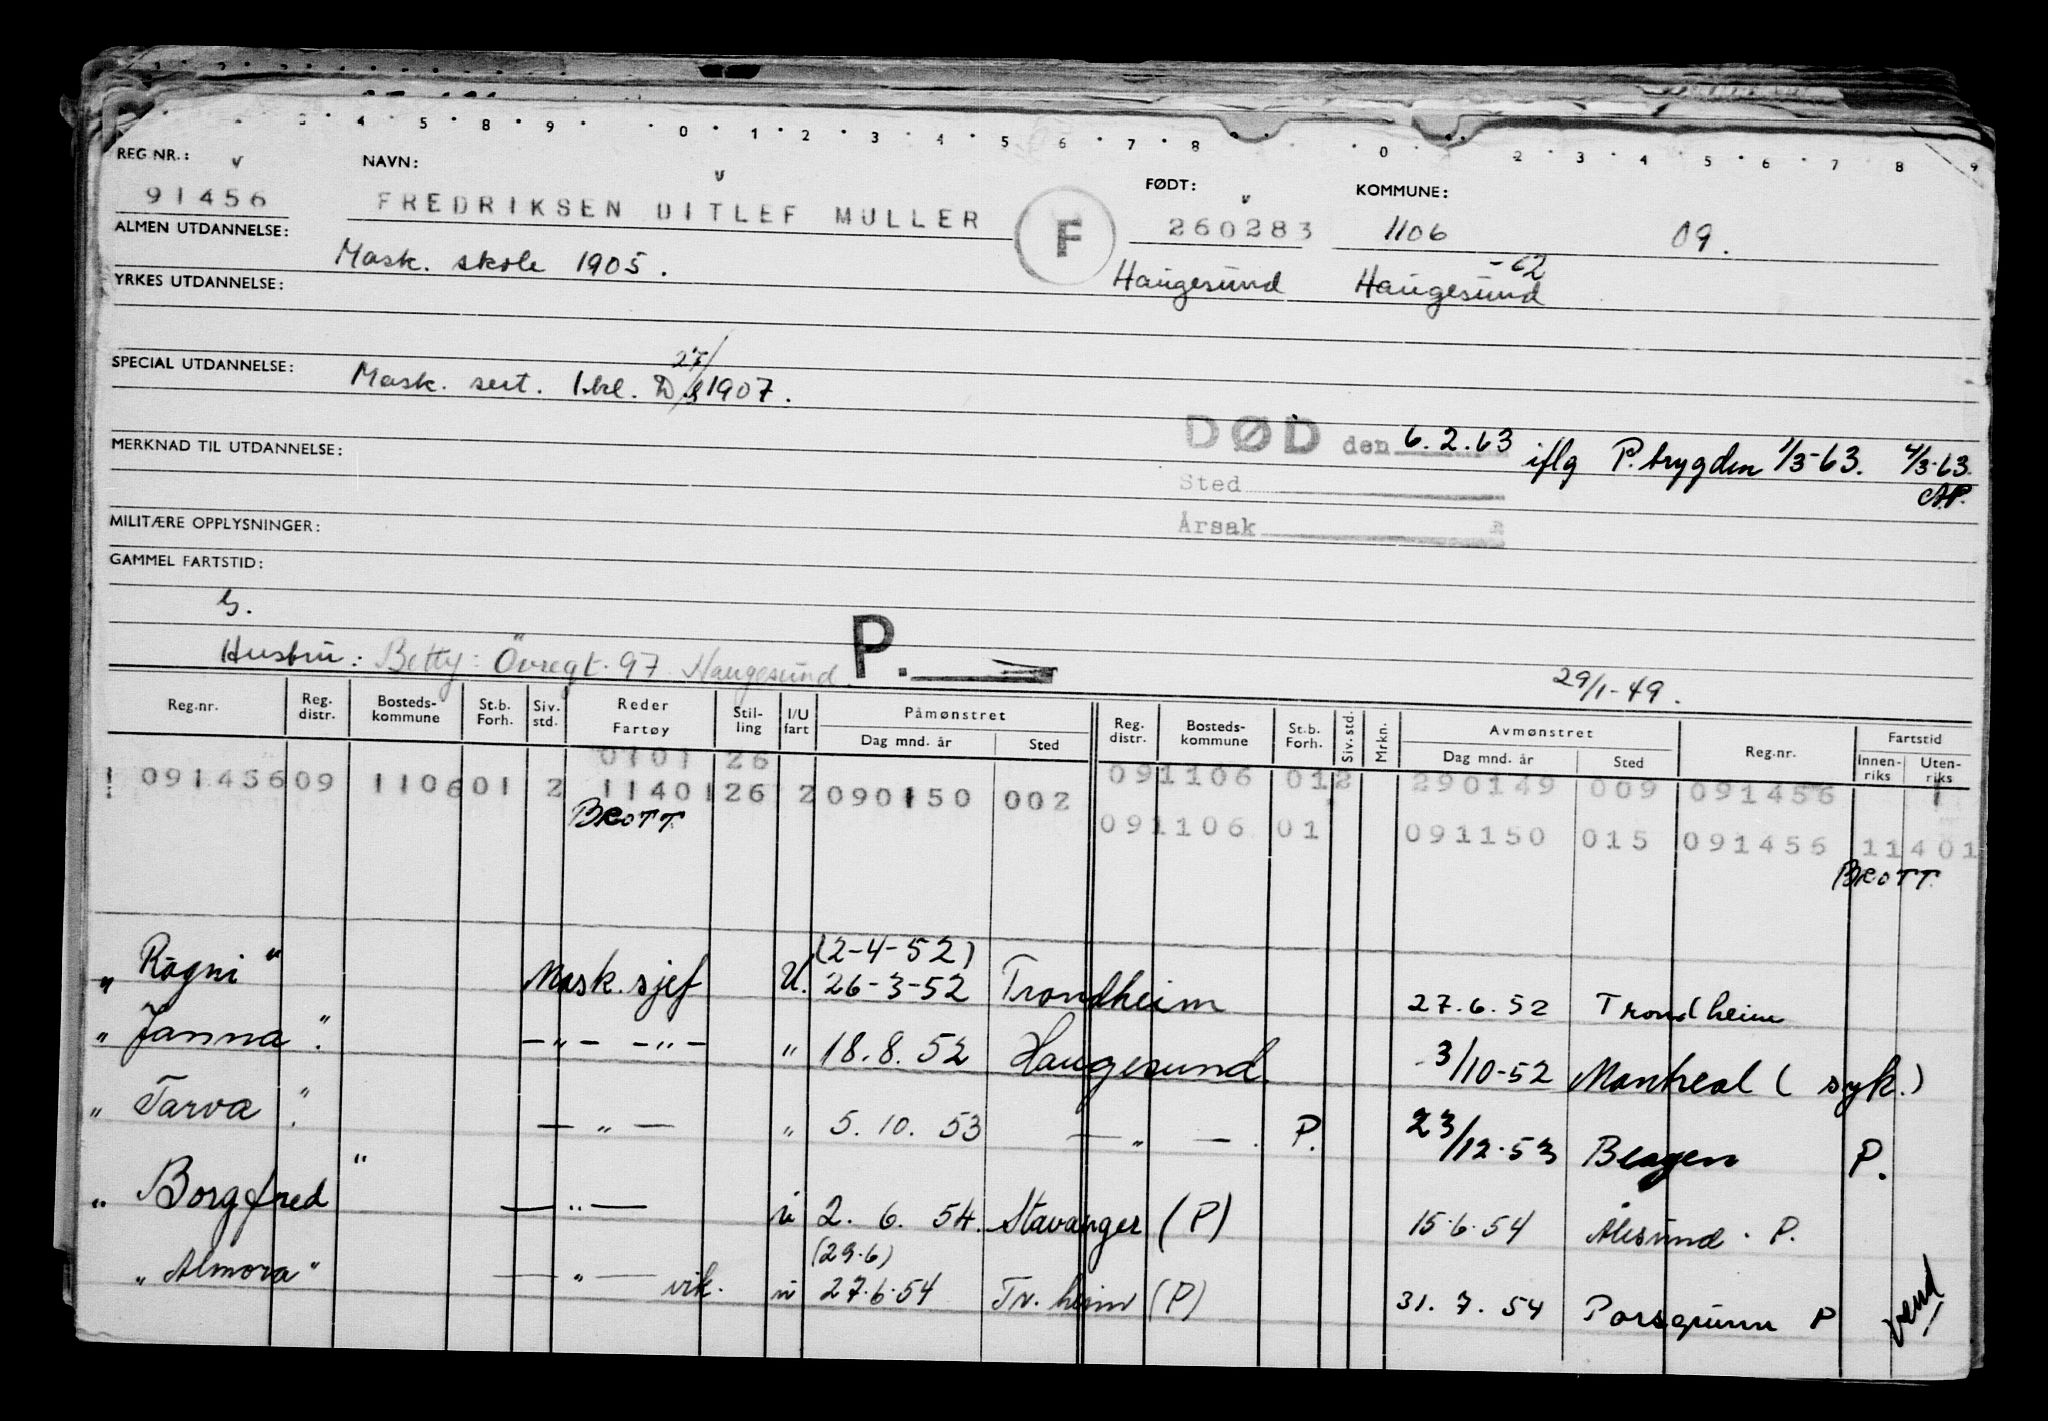 3 4 5 8 9 0 1 2 3 4 5 6 7 8 0 2 3 4 5 6 7 8 9
REG NR.: v NAVN: v FØDT: v KOMMUNE:
91456 FREDRIKSEN DITLEF MULLER F 260283 1106 09.
ALMEN UTDANNELSE: Mask. skole 1905. Haugesund Haugesund -62
YRKES UTDANNELSE:
SPECIAL UTDANNELSE: Mask. sert. 1.kl. D 27/ 1907.
DØD den 6.2.63 iflg P.trygden 1/3-63. 4/3-63. AP.
MERKNAD TIL UTDANNELSE:
Sted
MILITÆRE OPPLYSNINGER:
Årsak
GAMMEL FARTSTID:
G.
Hustru: Betty: Övregt. 97 Haugesund P.
29/1-49.
Reg.nr. Reg. distr. Bosteds-kommune St.b. Forh. Siv. std. Reder Fartøy Stil-ling I/U fart Påmønstret Dag mnd. år Sted Reg. distr. Bosteds-kommune St.b. Forh. Siv. std. Mrkn. Avmønstret Dag mnd. år Sted Reg.nr. Fartstid Innen-riks Uten-riks
0101 26 091106 012 290149 009 091456 1
091456 09 1106 01 2 11401 26 2 090150 002
BROTT 091106 01 091150 015 091456 11401
BROTT
(2-4-52)
" Ragni " Mask. sjef U. 26-3-52 Trondheim 27.6.52 Trondheim
" Janna " -"- -"- " 18.8.52 Haugesund 3/10-52 Montreal (syk.)
" Tarva " -"- " 5.10.53 -"- P. 23/12.53 Bergen P.
" Borgfred " -"- " 2.6.54 Stavanger (P) 15.6.54 Ålesund. P.
(29.6)
" Almora " -"- vik. " 27.6.54 Tr.heim (P) 31.7.54 Porsgrunn P
vend